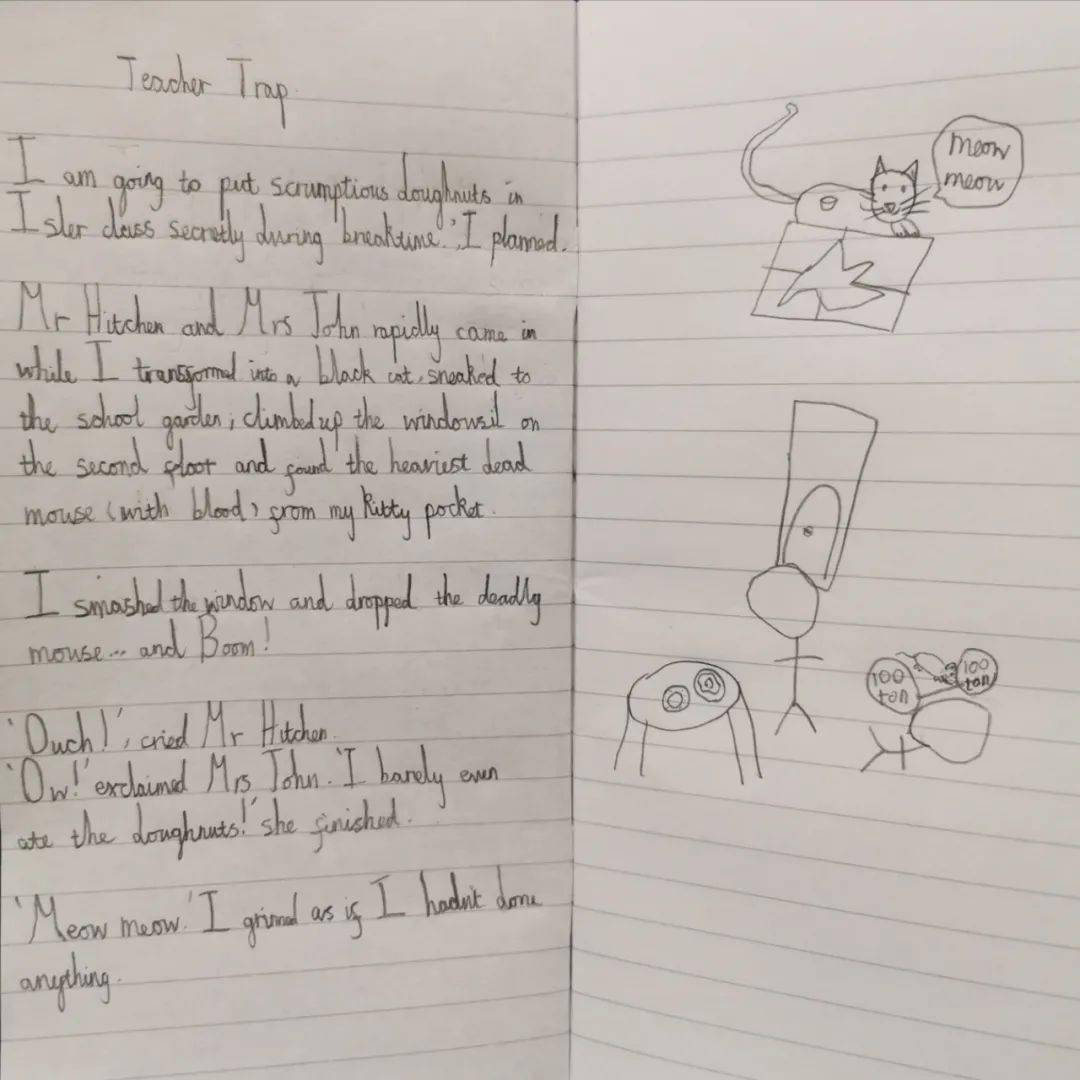 Teacher Trap.
I am going to put scrumptious doughnuts in
Isler class secretly during breaktime.', I planned.
Mr Hitchen and Mrs John rapidly came in
while I transformed into a black cat, sneaked to
the school garden, climbed up the windowsil on
the second floot and found the heaviest dead
mouse (with blood) from my kitty pocket.
I smashed the window and dropped the deadly
mouse... and Boom!
'Ouch!', cried Mr Hitchen.
'Ow!' exclaimed Mrs John. 'I barely even
ate the doughnuts!' she finished.
'Meow meow.' I grinned as if I hadn't done
anything.
meow
meow
100
ton
100
ton